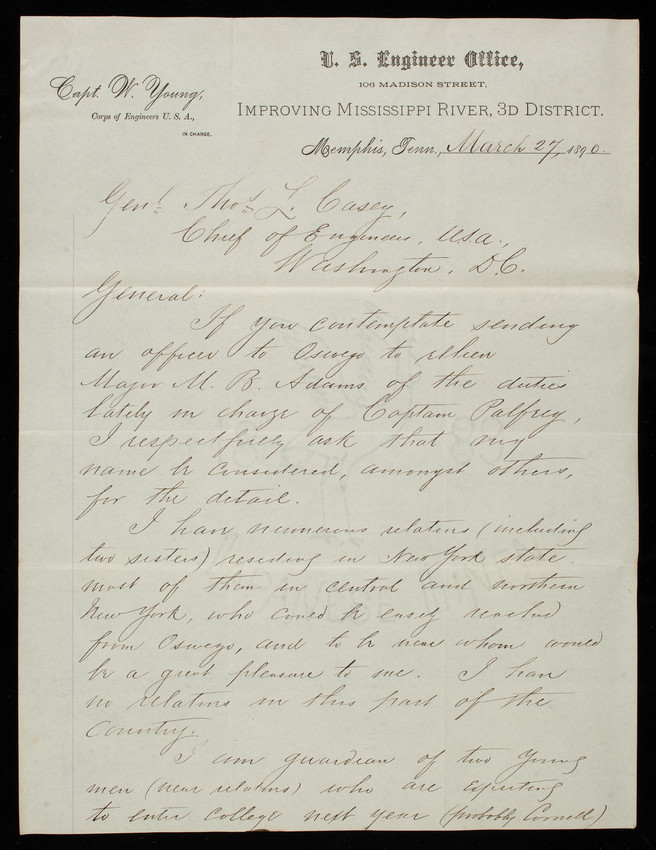 U. S. Engineer Office,
106 MADISON STREET,
Capt. W. Young,
Corps of Engineers U. S. A.,
IN CHARGE.
IMPROVING MISSISSIPPI RIVER, 3D DISTRICT.
Memphis, Tenn., March 27, 1890.
Genl. Thos. L. Casey,
Chief of Engineers, U.S.A.,
Washington, D.C.
General:
If you contemplate sending
an officer to Oswego to relieve
Major M. B. Adams of the duties
lately in charge of Captain Palfrey,
I respectfully ask that my
name be considered, amongst others,
for the detail.
I have numerous relatives (including
two sisters) residing in New York state
most of them in central and northern
New York, who could be easily reached
from Oswego, and to be near whom would
be a great pleasure to me. I have
no relatives in this part of the
Country.
I am guardian of two young
men (near relatives) who are expecting
to enter College next year (probably Cornell)